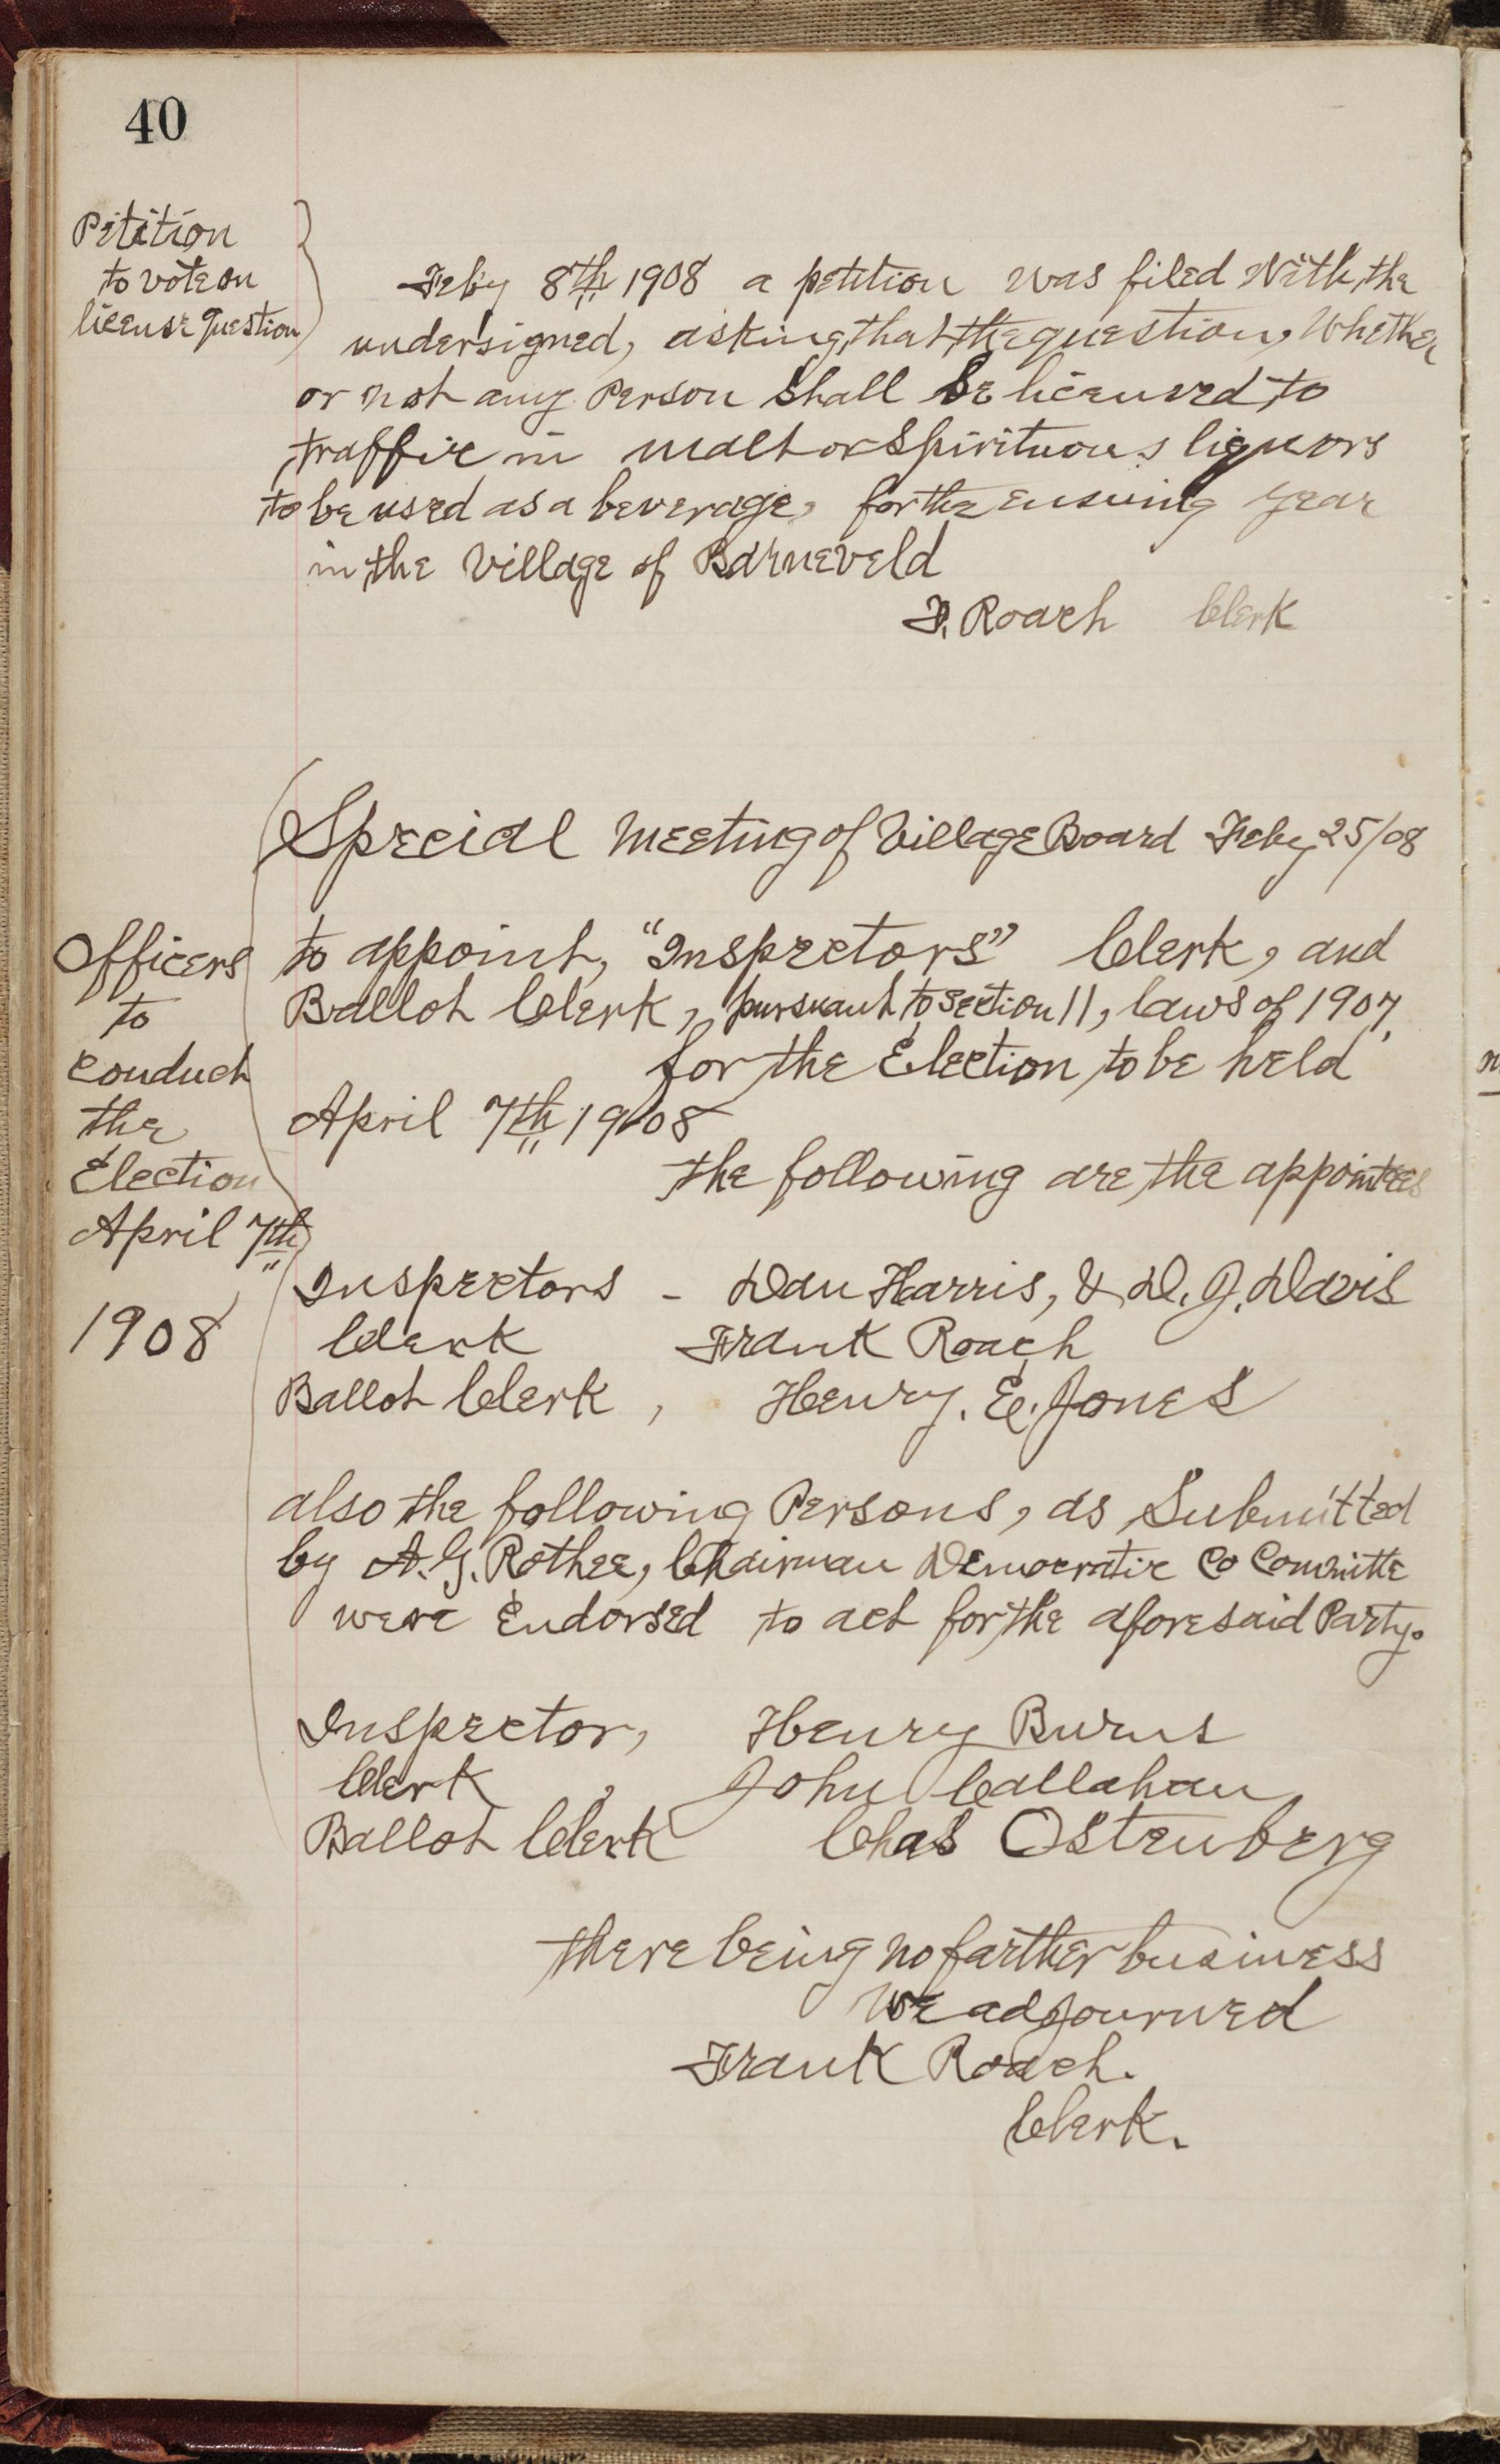 40
Petition
to vote on
license question
Feby 8th 1908 a petition was filed With the
undersigned, asking that the question, Whether
or not any Person Shall be licensed to
traffic in malt or Spirituous liquors
to be used as a beverage, for the ensuing year
in the Village of Barneveld
F. Roach Clerk
Special Meeting of Village Board Feby 25/08
Officers
to
conduct
the
Election
April 7th
1908
to appoint, "Inspectors" Clerk, and
Ballot Clerk, pursuant to Section 11, laws of 1907,
for the Election to be held
April 7th 1908
the following are the appointees
Inspectors - Dan Harris, & D. J. Davis
Clerk Frank Roach
Ballot Clerk, Henry. E. Jones
also the following Persons, as Submitted
by A. G. Rothee, Chairman Democratic Co Committe
were Endorsed to act for the aforesaid Party.
Inspector, Henry Burns
Clerk, John Callahan
Ballot Clerk Chas Ostenberg
there being no farther business
We adjourned
Frank Roach.
Clerk.